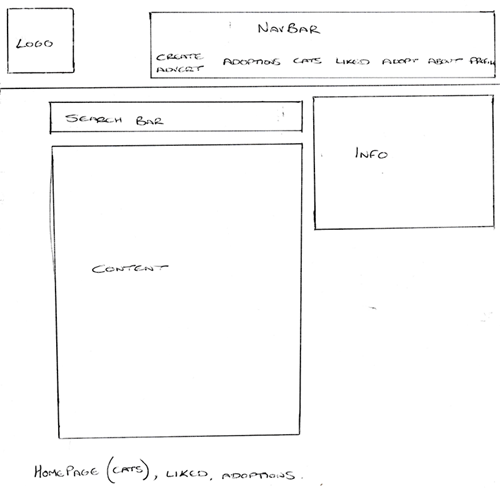 LOGO
NAVBAR
CREATE ADVERT
ADOPTIONS CATS LIKED ADOPT ABOUT
SEARCH BAR
INFO
CONTENT
HOMEPAGE (CATS), LIKED, ADOPTIONS.